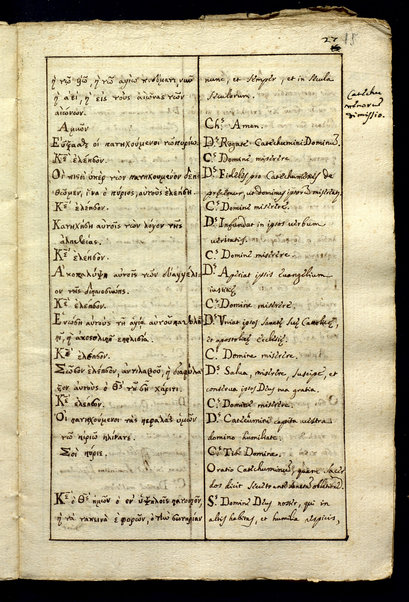 27 18
ἢ τῷ υἱῷ, ἢ τῷ ἁγίῳ πνεύματι νῦν
ἢ ἀεὶ, ἢ εἰς τοὺς αἰῶνας τῶν
αἰώνων.
Ἀμὴν
Εὔξασθε οἱ κατηχούμενοι τῷ κυρίῳ
Κε ἐλέησον.
Οἱ πιστοὶ ὑπὲρ τῶν κατηχουμένων δεη
θῶμεν, ἵνα ὁ κύριος αὐτοὺς ἐλεήσῃ
Κε ἐλέησον.
Κατηχήσῃ αὐτοὺς τὸν λόγον τῆς
ἀληθείας.
Κε ἐλέησον.
Ἀποκαλύψῃ αὐτοῖς τὸν εὐαγγέλι
ον τῆς δικαιοσύνης.
Κε ἐλέησον.
Ἑνώσῃ αὐτοὺς τῇ ἁγίᾳ αὐτοῦ καθολι
κῇ, ἢ ἀποστολικῇ ἐκκλησίᾳ
Κε ἐλέησον.
Σῶσον ἐλέησον, ἀντιλαβοῦ, ἢ διαφύλα
ξον αὐτοὺς ὁ Θς τῇ σῇ χάριτι.
Κε ἐλέησον.
Οἱ κατηχούμενοι τὰς κεφαλὰς ὑμῶν
τῷ κυρίῳ κλίνατε.
Σοὶ κύριε.
Κε ὁ Θς ἡμῶν ὁ ἐν ὑψηλοῖς κατοικῶν,
ἢ τὰ ταπεινὰ ἐφορῶν, ὁ τὴν σωτηρίαν
nunc, et semper, et in secula
seculorum.
Chs Amen.
Ds Rogate Catechumini Dominum.
Cs Domine miserere.
Ds Fideles pro Catechuminis de
precemur, ut dominus ipsorum misereatur.
Cs Domine miserere.
Ds Infundat in ipsos verbum
veritatis.
Cs Domine miserere.
Ds Aperiat ipsis euangelium
iustitiae.
Cs Domine miserere.
Ds Uniat ipsos sanctae suae Catholicae,
et apostolicae ecclesiae.
Cs Domine miserere.
Ds Salua, miserere, suscipe, et
conserua ipsos Deus tua gratia.
Cs Domine miserere.
Ds Catechumini capita vestra
domino humiliate.
Cs Tibi Domine.
Oratio Catechuminorum, quam sacer
dos dicit secreto ante sanctam oblationem.
Ss Domine Deus noster, qui in
altis habitas, et humilia respicis,
Catechu
minorum
dimissio.